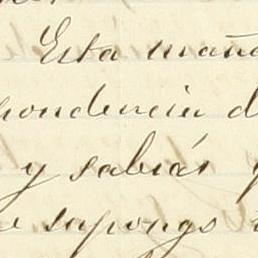 Esta maña
pondencia d
y sabiás
supongo